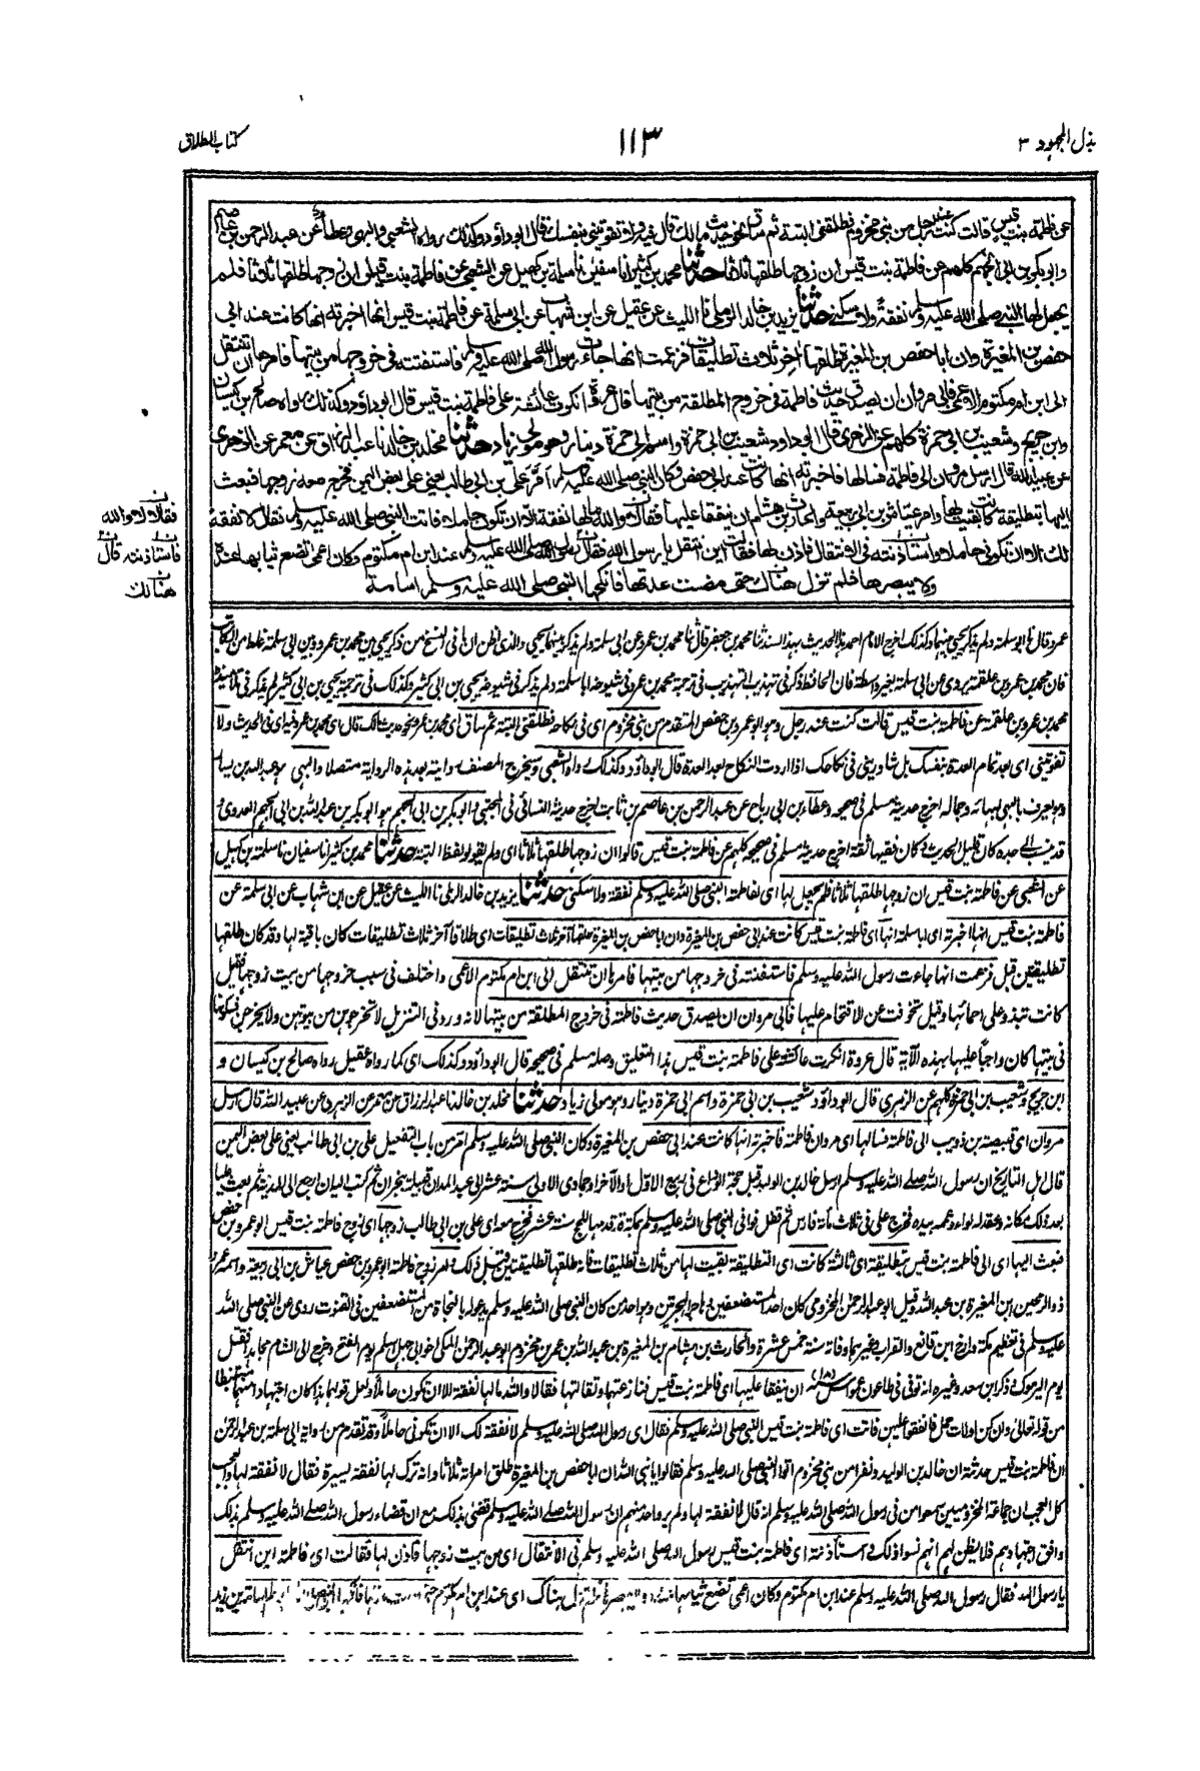 بذل المجهود ٣
١١٣
كتاب الطلاق
عن فاطمة بنت قيس قالت كنت عند رجل من بني مخزوم فطلقني البتة ثم ساق نحو حديث مالك قال فيه ولا تفوتيني بنفسك قال ابوداود وكذلك رواه الشعبي والبهي وعطاء عن عبد الرحمن بن عاصم
وابوبكر بن ابي الجهم كلهم عن فاطمة بنت قيس ان زوجها طلقها ثلاثا حدثنا محمد بن كثير انا سفين نا سلمة بن كهيل عن الشعبي عن فاطمة بنت قيس ان زوجها طلقها ثلاثا فلم
يجعل لها النبي صلى الله عليه وسلم نفقة ولا سكنى حدثنا يزيد بن خالد الرملي نا الليث عن عقيل عن ابن شهاب عن ابي سلمة عن فاطمة بنت قيس انها اخبرته انها كانت عند ابي
حفص بن المغيرة وان ابا حفص بن المغيرة طلقها اخر ثلاث تطليقات فزعمت انها جاءت رسول الله صلى الله عليه وسلم فاستفتته في خروجها من بيتها فامرها ان تنتقل
الى ابن ام مكتوم الاعمى فابى مروان ان يصدق حديث فاطمة في خروج المطلقة من بيتها قال عروة انكرت عائشة على فاطمة بنت قيس قال ابوداود وكذلك رواه صالح بن كيسان
وابن جريج وشعيب بن ابي حمزة كلهم عن الزهري قال ابوداود شعيب بن ابي حمزة واسم ابي حمزة دينار وهو مولى زياد حدثنا مخلد بن خالد نا عبد الرزاق عن معمر عن الزهري
عن عبيد الله قال ارسل مروان الى فاطمة فسالها فاخبرته انها كانت عند ابي حفص وكان النبي صلى الله عليه وسلم امر علي بن ابي طالب يعني على بعض اليمن فخرج معه زوجها فبعث
اليها بتطليقة كانت بقيت لها وامر عياش بن ابي ربيعة والحارث بن هشام ان ينفقا عليها فقالا والله مالها نفقة الا ان تكون حاملا فاتت النبي صلى الله عليه وسلم فقال لا نفقة
لك الا ان تكوني حاملا واستاذنته في الانتقال فاذن لها فقالت اين انتقل يا رسول الله فقال رسول الله صلى الله عليه وسلم عند ابن ام مكتوم وكان اعمى تضع ثيابها عنده
ولا يبصرها فلم تزل هناك حتى مضت عدتها فانكحها النبي صلى الله عليه وسلم اسامة
فقالا لا والله
فاستاذنته قال
هنالك
عمرو قال نا ابو سلمة ولم يذكر يحيى بينهما وكذلك اخرج الامام احمد هذا الحديث بهذا السند ثنا محمد بن جعفر قال ثنا محمد بن عمرو عن ابي سلمة ولم يذكر بينهما يحيى والذي نظن ان ما في النسخ من ذكر يحيى بين محمد بن عمرو وبين ابي سلمة غلط من الكاتب
فان محمد بن عمرو بن علقمة يروي عن ابي سلمة بغير واسطة فان الحافظ ذكر في تهذيب التهذيب في ترجمة محمد بن عمرو في شيوخه ابا سلمة ولم يذكر في شيوخه يحيى بن ابي كثير وكذلك في ترجمة يحيى بن ابي كثير لم يذكر في تلامذته
محمد بن عمرو بن علقمة عن فاطمة بنت قيس قالت كنت عند رجل وهو ابو عمرو بن حفص المتقدم من بني مخزوم اي في نكاحه فطلقني البتة ثم ساق اي محمد بن عمرو نحو حديث مالك قال اي محمد بن عمرو فيه اي في الحديث ولا
تفوتيني اي بعد تمام العدة بنفسك بل شاوريني في نكاحك اذا اردت النكاح بعد العدة قال ابوداود وكذلك رواه الشعبي وسيخرج المصنف روايته بعد هذه الرواية متصلا والبهي هو عبد الله بن يسار
وهو يعرف بالبهي لبهائه وجماله اخرج حديثه مسلم في صحيحه وعطاء بن ابي رباح عن عبد الرحمن بن عاصم بن ثابت اخرج حديثه النسائي في المجتبى وابوبكر بن ابي الجهم هو ابوبكر بن عبد الله بن ابي الجهم العدوي
قد ينسب الى جده كان قليل الحديث كان فقيها ثقة اخرج حديثه مسلم في صحيحه كلهم عن فاطمة بنت قيس قالوا ان زوجها طلقها ثلاثا اي ولم يقولوا لفظ البتة حدثنا محمد بن كثير انا سفيان نا سلمة بن كهيل
عن الشعبي عن فاطمة بنت قيس ان زوجها طلقها ثلاثا فلم يجعل لها اي لفاطمة النبي صلى الله عليه وسلم نفقة ولا سكنى حدثنا يزيد بن خالد الرملي نا الليث عن عقيل عن ابن شهاب عن ابي سلمة عن
فاطمة بنت قيس انها اخبرته اي ابا سلمة انها اي فاطمة بنت قيس كانت عند ابي حفص بن المغيرة وان ابا حفص بن المغيرة طلقها آخر ثلاث تطليقات اي طلاقا آخر ثلاث تطليقات كان باقية لها وقد كان طلقها
تطليقتين قبل فزعمت انها جاءت رسول الله صلى الله عليه وسلم فاستفتته في خروجها من بيتها فامرها ان تنتقل الى ابن ام مكتوم الاعمى واختلف في سبب خروجها من بيت زوجها فقيل
كانت تبذو على احمائها وقيل تخوفت عن الاقتحام عليها فابى مروان ان يصدق حديث فاطمة في خروج المطلقة من بيتها لانه ورد في التنزيل لا تخرجوهن من بيوتهن ولا يخرجن فسكونها
في بيتها كان واجبا عليها بهذه الآية قال عروة انكرت عائشة على فاطمة بنت قيس هذا التعليق وصله مسلم في صحيحه قال ابوداود وكذلك اي كما رواه عقيل رواه صالح بن كيسان و
ابن جريج وشعيب بن ابي حمزة كلهم عن الزهري قال ابوداود وشعيب بن ابي حمزة واسم ابي حمزة دينار وهو مولى زياد حدثنا مخلد بن خالد نا عبد الرزاق عن معمر عن الزهري عن عبيد الله قال ارسل
مروان اي قبيصة بن ذويب الى فاطمة فسالها اي مروان فاطمة فاخبرته انها كانت عند ابي حفص بن المغيرة وكان النبي صلى الله عليه وسلم امر من باب التفعيل علي بن ابي طالب يعني على بعض اليمن
قال اهل التاريخ ان رسول الله صلى الله عليه وسلم ارسل خالد بن الوليد قبل حجة الوداع في ربيع الاول او الآخر او جمادى الاولى سنة عشر الى عبد المدان قبيلة بنجران ثم كتب اليه ان ارجع الى المدينة ثم بعث عليا
بعد ذلك مكانه وعقد له لواء وعممه بيده فخرج علي في ثلاث مائة فارس ثم قفل فوافى النبي صلى الله عليه وسلم بمكة قد قدمها للحج سنة عشر فخرج معه اي علي بن ابي طالب زوجها اي زوج فاطمة بنت قيس ابو عمرو بن حفص
فبعث اليها اي الى فاطمة بنت قيس بتطليقة اي ثالثة كانت اي التطليقة بقيت لها من ثلاث تطليقات فانه طلقها تطليقتين قبل ذلك وامر زوج فاطمة ابو عمرو بن حفص عياش بن ابي ربيعة واسمه عمرو
ذو الرمحين ابن المغيرة بن عبد الله وقيل ابو عبد الرحمن المخزومي كان احد المستضعفين هاجر الهجرتين وهو احد من كان النبي صلى الله عليه وسلم يدعو له بالنجاة من المستضعفين في القنوت روى عن النبي صلى الله
عليه وسلم في تعظيم مكة وارخ ابن قانع والقراب وغيرهما وفاته سنة خمس عشرة والحارث بن هشام بن المغيرة بن عبد الله بن عمر بن مخزوم ابو عبد الرحمن المكي اخو ابي جهل اسلم يوم الفتح وخرج الى الشام مجاهدا فقتل
يوم اليرموك وذكر ابن سعد وغيره انه توفي في طاعون عمواس سنة ١٨ ان ينفقا عليها اي فاطمة بنت قيس فنازعتها وتقالتها فقالا والله مالها نفقة الا ان تكون حاملا ولعل قولهما هذا كان اجتهادا منهما
من قوله تعالى وان كن اولات حمل فانفقوا عليهن فاتت اي فاطمة بنت قيس النبي صلى الله عليه وسلم فقال اي رسول الله صلى الله عليه وسلم لا نفقة لك الا ان تكوني حاملا وقد تقدم من رواية ابي سلمة بن عبد الرحمن
ان فاطمة بنت قيس حدثته ان خالد بن الوليد ونفرا من بني مخزوم اتوا النبي صلى الله عليه وسلم فقالوا يا نبي الله ان ابا حفص بن المغيرة طلق امراته ثلاثا وانه ترك لها نفقة يسيرة فقال لا نفقة لها والعجب
كل العجب ان جماعة المخزوميين سمعوا من في رسول الله صلى الله عليه وسلم انه قال لا نفقة لها ولم يرو احد منهم ان رسول الله صلى الله عليه وسلم قضى بذلك مع ان قضاء رسول الله صلى الله عليه وسلم بذلك
وافق اجتهادهم فلا يظن لهم انهم نسوا ذلك واستأذنته اي فاطمة بنت قيس رسول الله صلى الله عليه وسلم في الانتقال اي من بيت زوجها فاذن لها فقالت اي فاطمة اين انتقل
يا رسول الله فقال رسول الله صلى الله عليه وسلم عند ابن ام مكتوم وكان اعمى تضع ثيابها عنده ولا يبصرها فلم تزل هناك اي عند ابن ام مكتوم